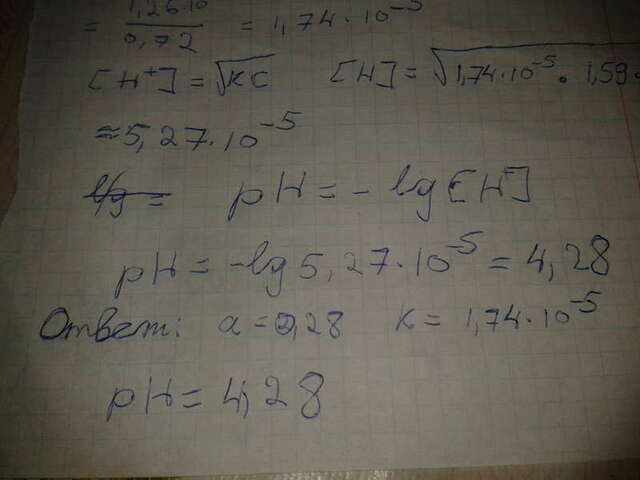 = 1,26·10 / 0,72 = 1,74·10⁻⁵
[H⁺] = √KC [H] = √1,74·10⁻⁵ · 1,59·
≈ 5,27·10⁻⁵
pH = - lg[H⁺]
pH = -lg 5,27·10⁻⁵ = 4,28
Ответ: α = 0,28 K = 1,74·10⁻⁵
pH = 4,28